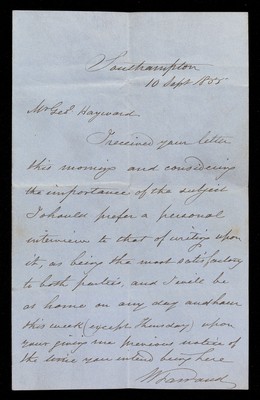 Southampton
10 Sept 1855
Mr Geo. Hayward
I received your letter
this morning and considering
the importance of the subject
I should prefer a personal
interview to that of writing upon
it, as being the most satisfactory
to both parties, and I will be
at home on any day and hour
this week (except Thursday) upon
your giving me previous notice of
the time you intend being here